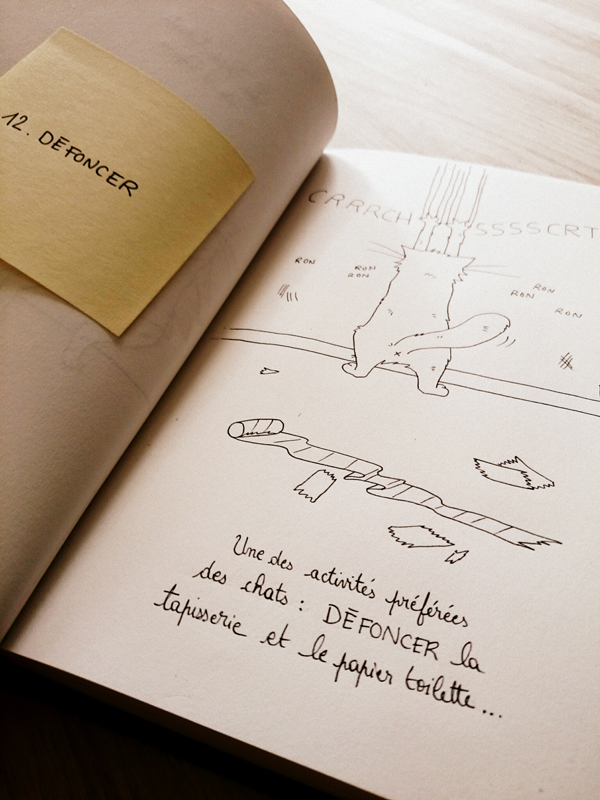 12. DÉFONCER
CRRRCH SSSSCRT
RON RON RON
RON RON RON
Une des activités préférées
des chats : DÉFONCER la
tapisserie et le papier toilette...